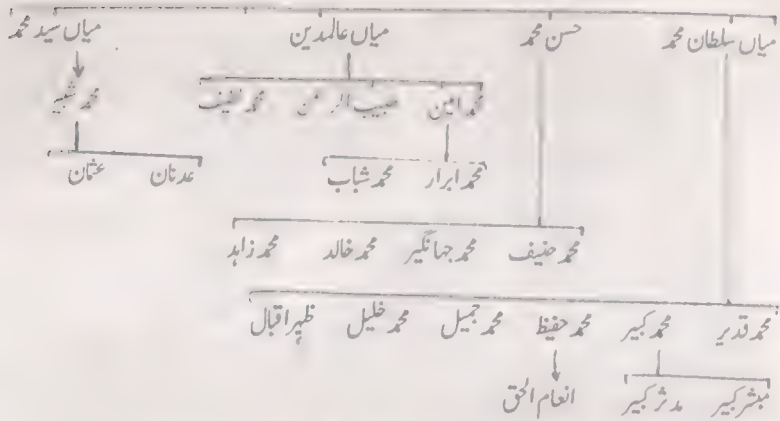 میاں سلطان محمد حسن محمد میاں عالمدین میاں سید محمد
محمد امین حبیب الرحمن محمد لطیف محمد شبیر
محمد ابرار محمد شباب عدنان عثمان
محمد حنیف محمد جہانگیر محمد خالد محمد زاہد
محمد قدیر محمد کبیر محمد حفیظ محمد جمیل محمد خلیل ظہیر اقبال
مبشر کبیر مدثر کبیر انعام الحق